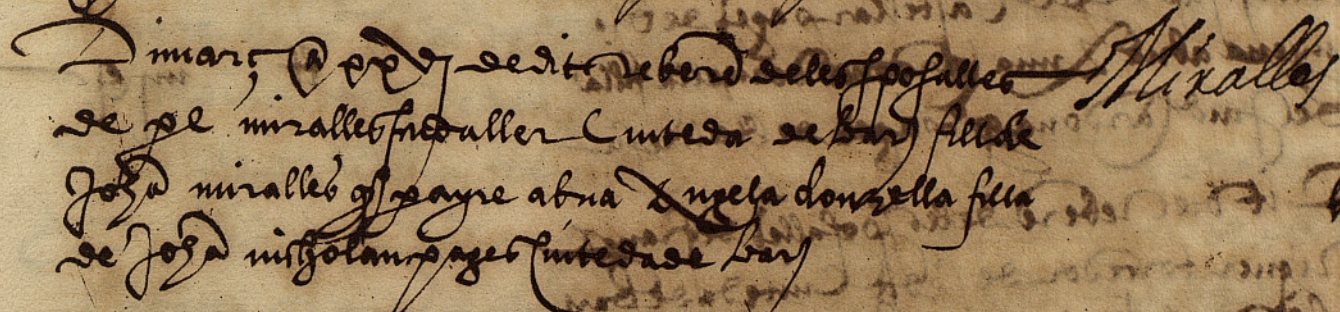 Dimarç a xxvj de dit rebere de les sposalles Miralles
de pe miralles sucaller Ciuteda de Bar) fill de
Joha miralles payre ab na Angela donzella filla
de Joha nicholau pages Ciutedade Bar)